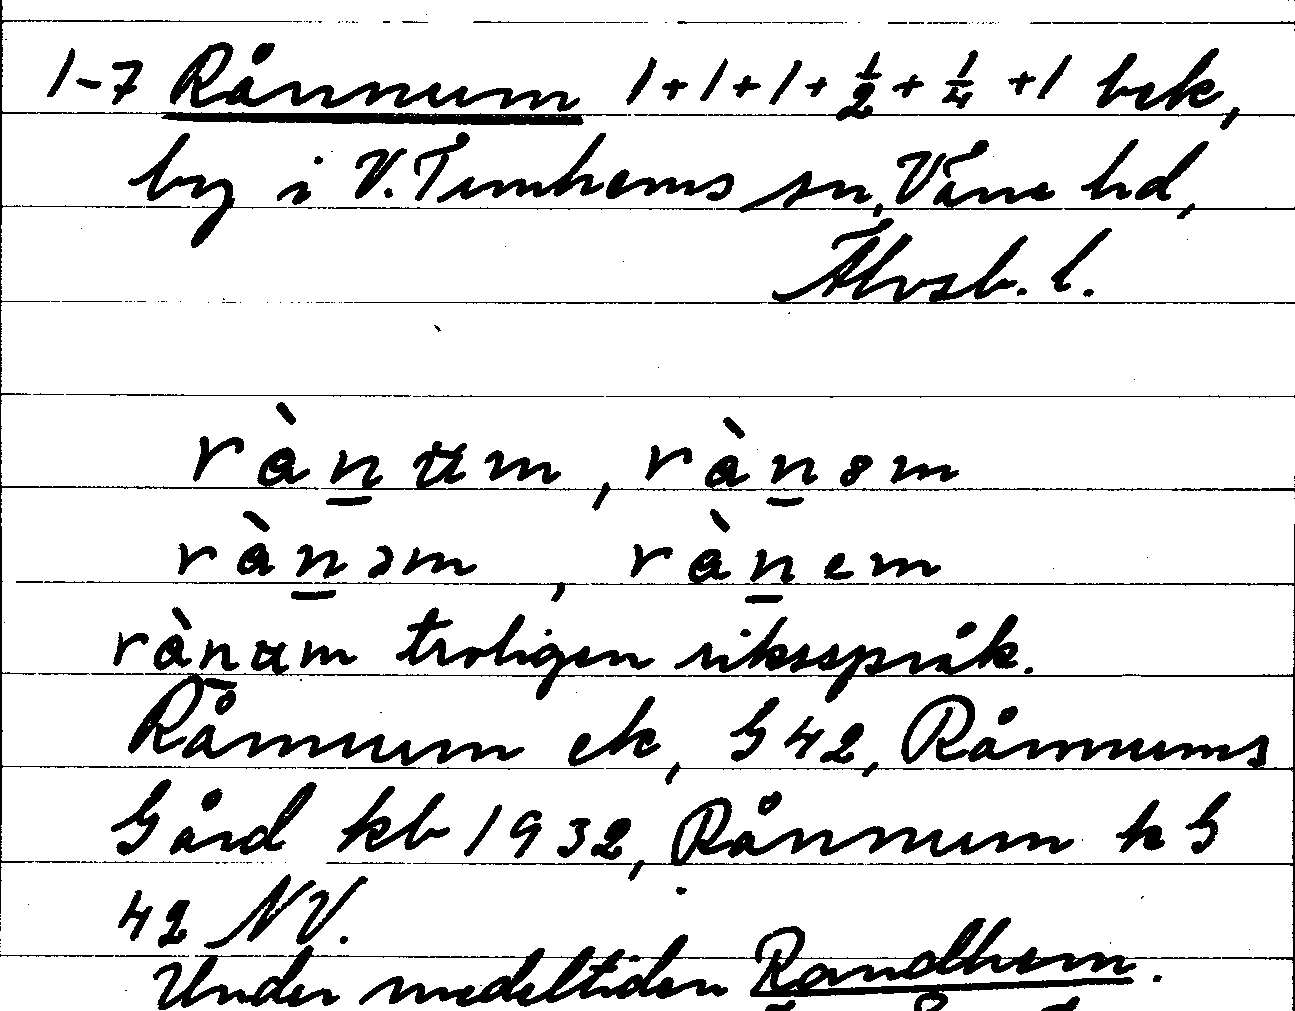 1-7 Rånnum 1+1+1+½+¼+1 bek,
by i V. Tunhems sn, Väne hd,
Älvsb. l.
rànum, rànɵm
rànəm, rànem
rànum troligen riksspråk.
Rånnum ek, G42, Rånnums
Gård kb 1932, Rånnum k G
42 NV.
Under medeltiden Randhem.